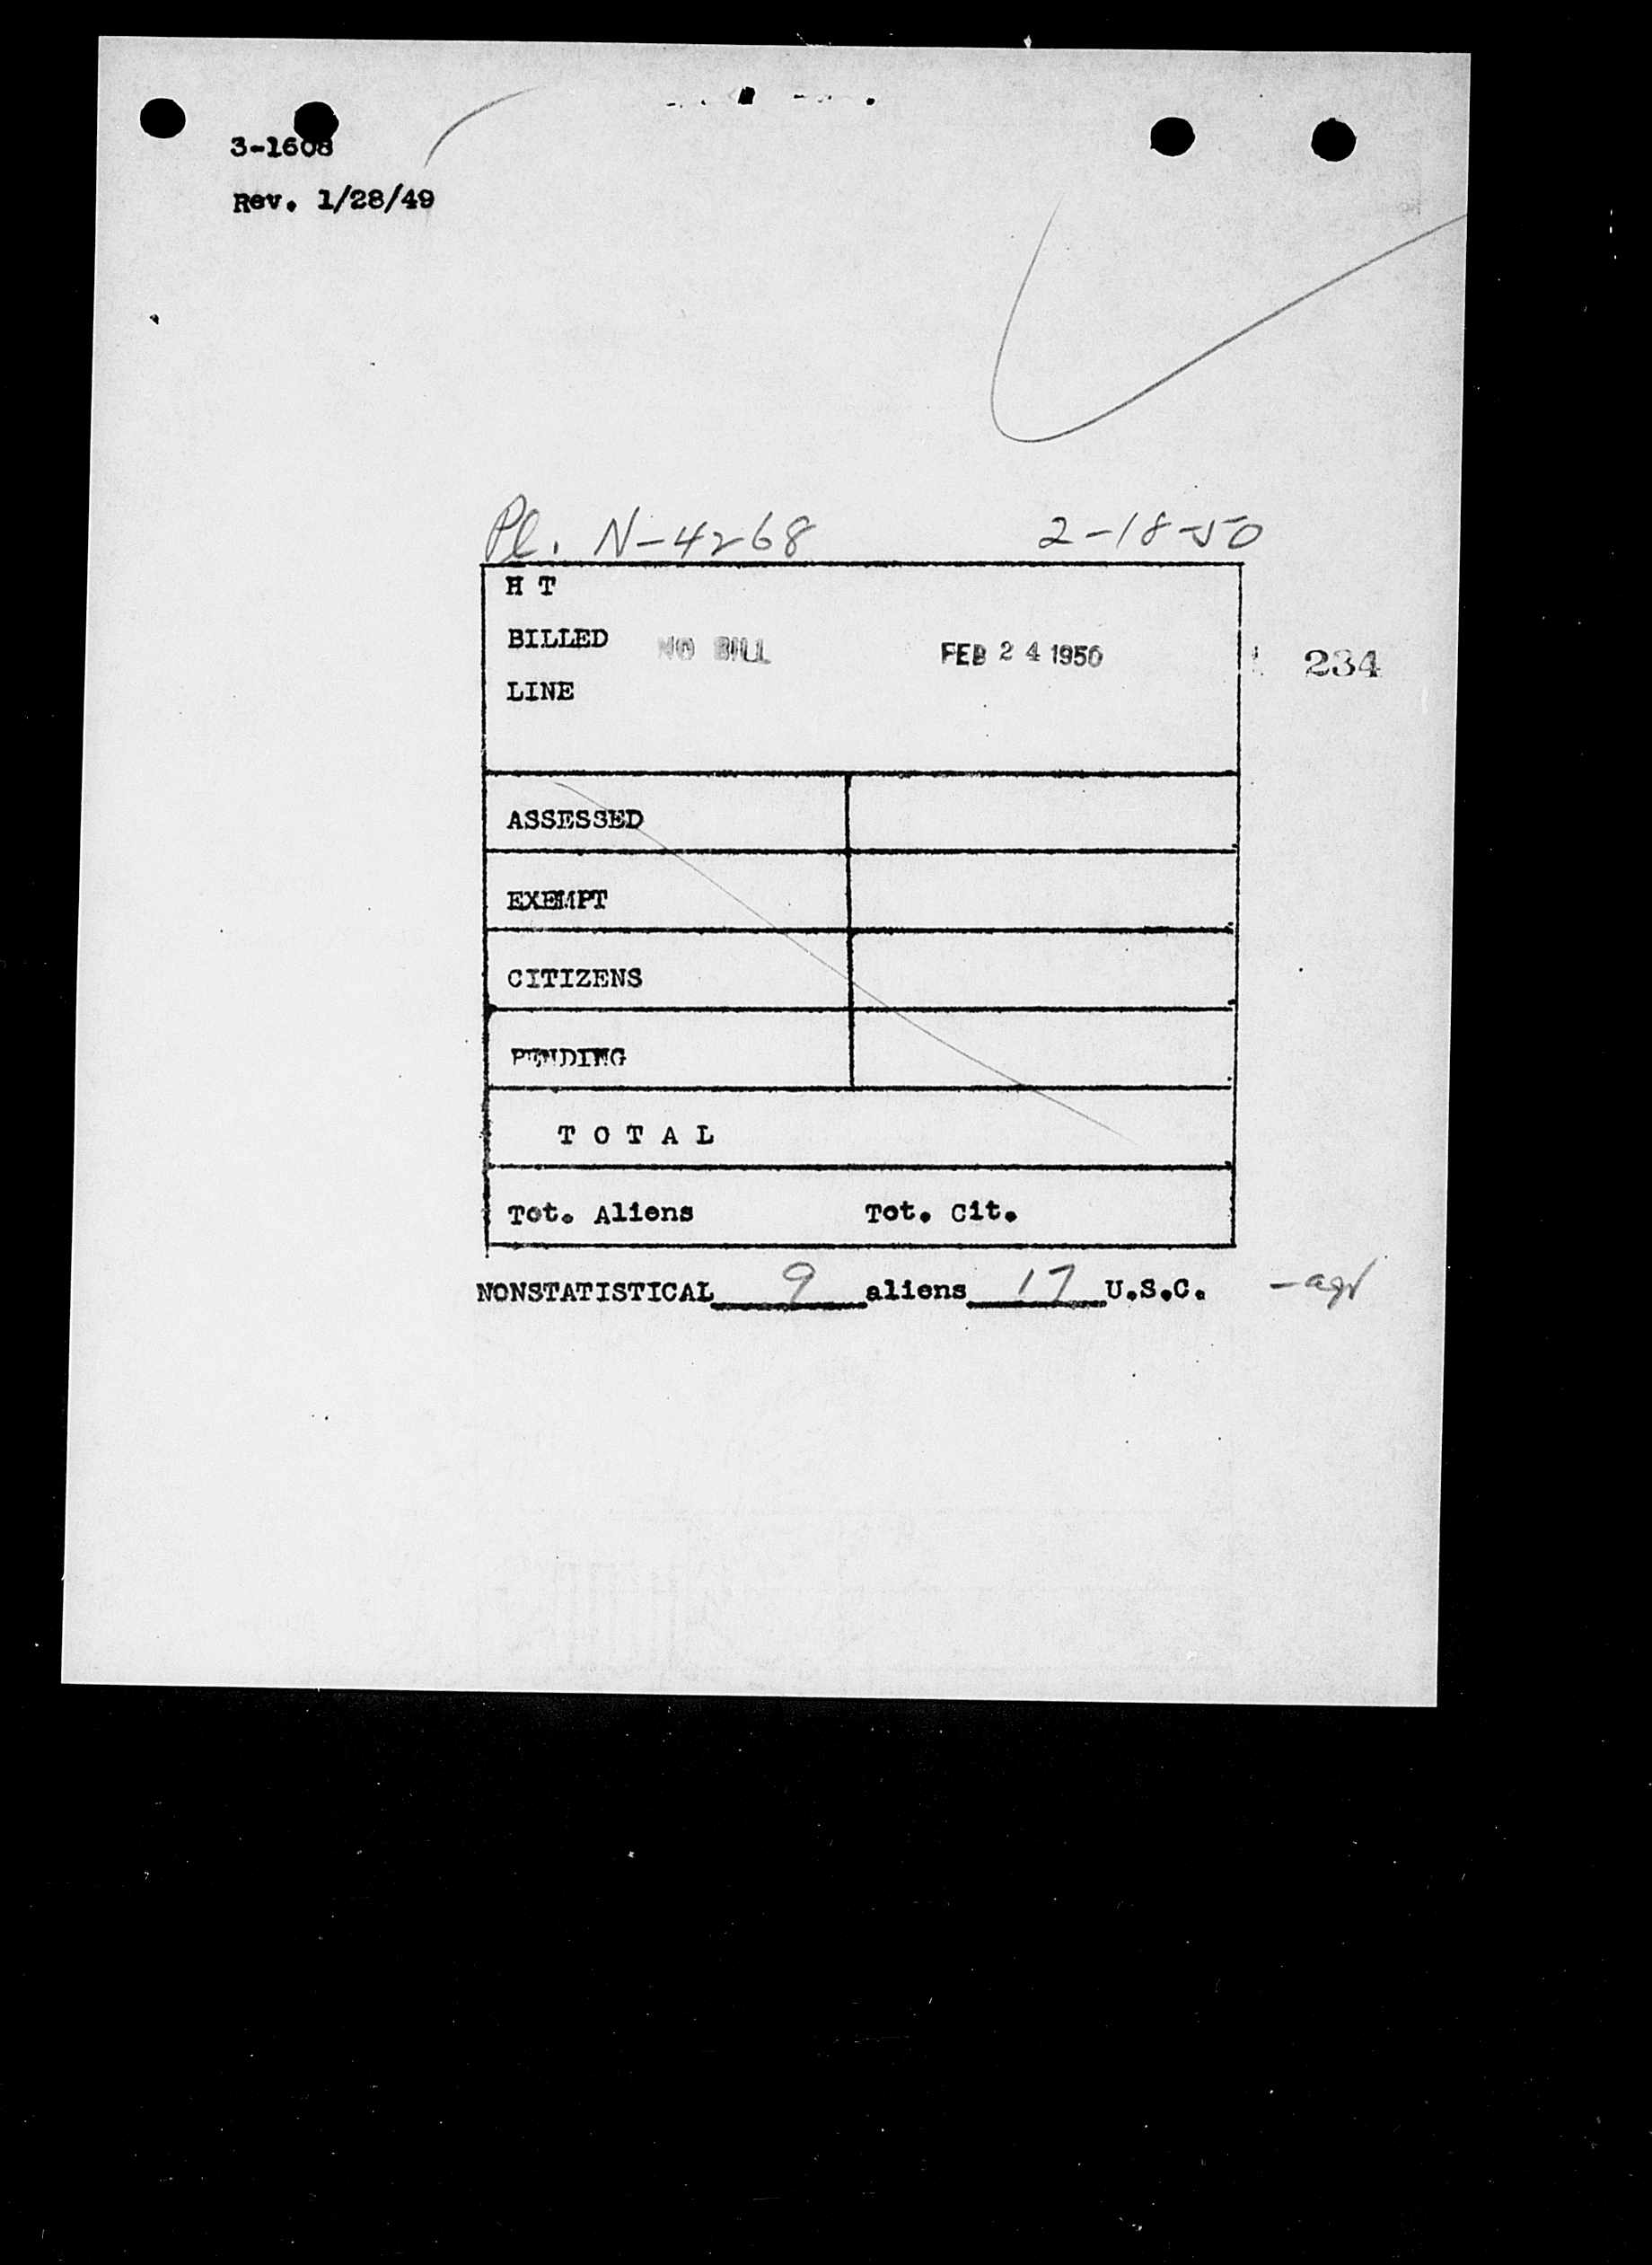 3-1608
Rev. 1/28/49
Pl. N-4268 2-18-50
H T
BILLED NO BILL FEB 24 1950 234
LINE
ASSESSED
EXEMPT
CITIZENS
PENDING
T O T A L
Tot. Aliens Tot. Cit.
NONSTATISTICAL 9 aliens 17 U.S.C.